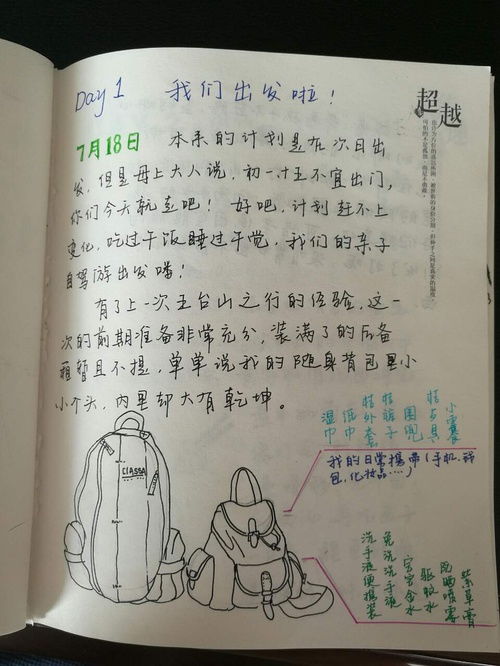 Day 1 我们出发啦！
超越
7月18日 本来的计划是在次日出
发，但是母上大人说，初一十五不宜出门，
你们今天就走吧！好吧，计划赶不上
变化，吃过午饭睡过午觉，我们的亲子
自驾游出发喽！
有了上一次五台山之行的经验，这一
次的前期准备非常充分，装满了的后备
箱暂且不提，单单说我的随身背包里小
小个头，内里却大有乾坤。
湿巾
纸巾
外套
裤子
围兜
小零食
CIASSA
我的日常携带（手机、钱
包、化妆品……）
洗手液便携装
免洗洗手液
宫宫金水
驱蚊水
防晒喷雾
紫草膏